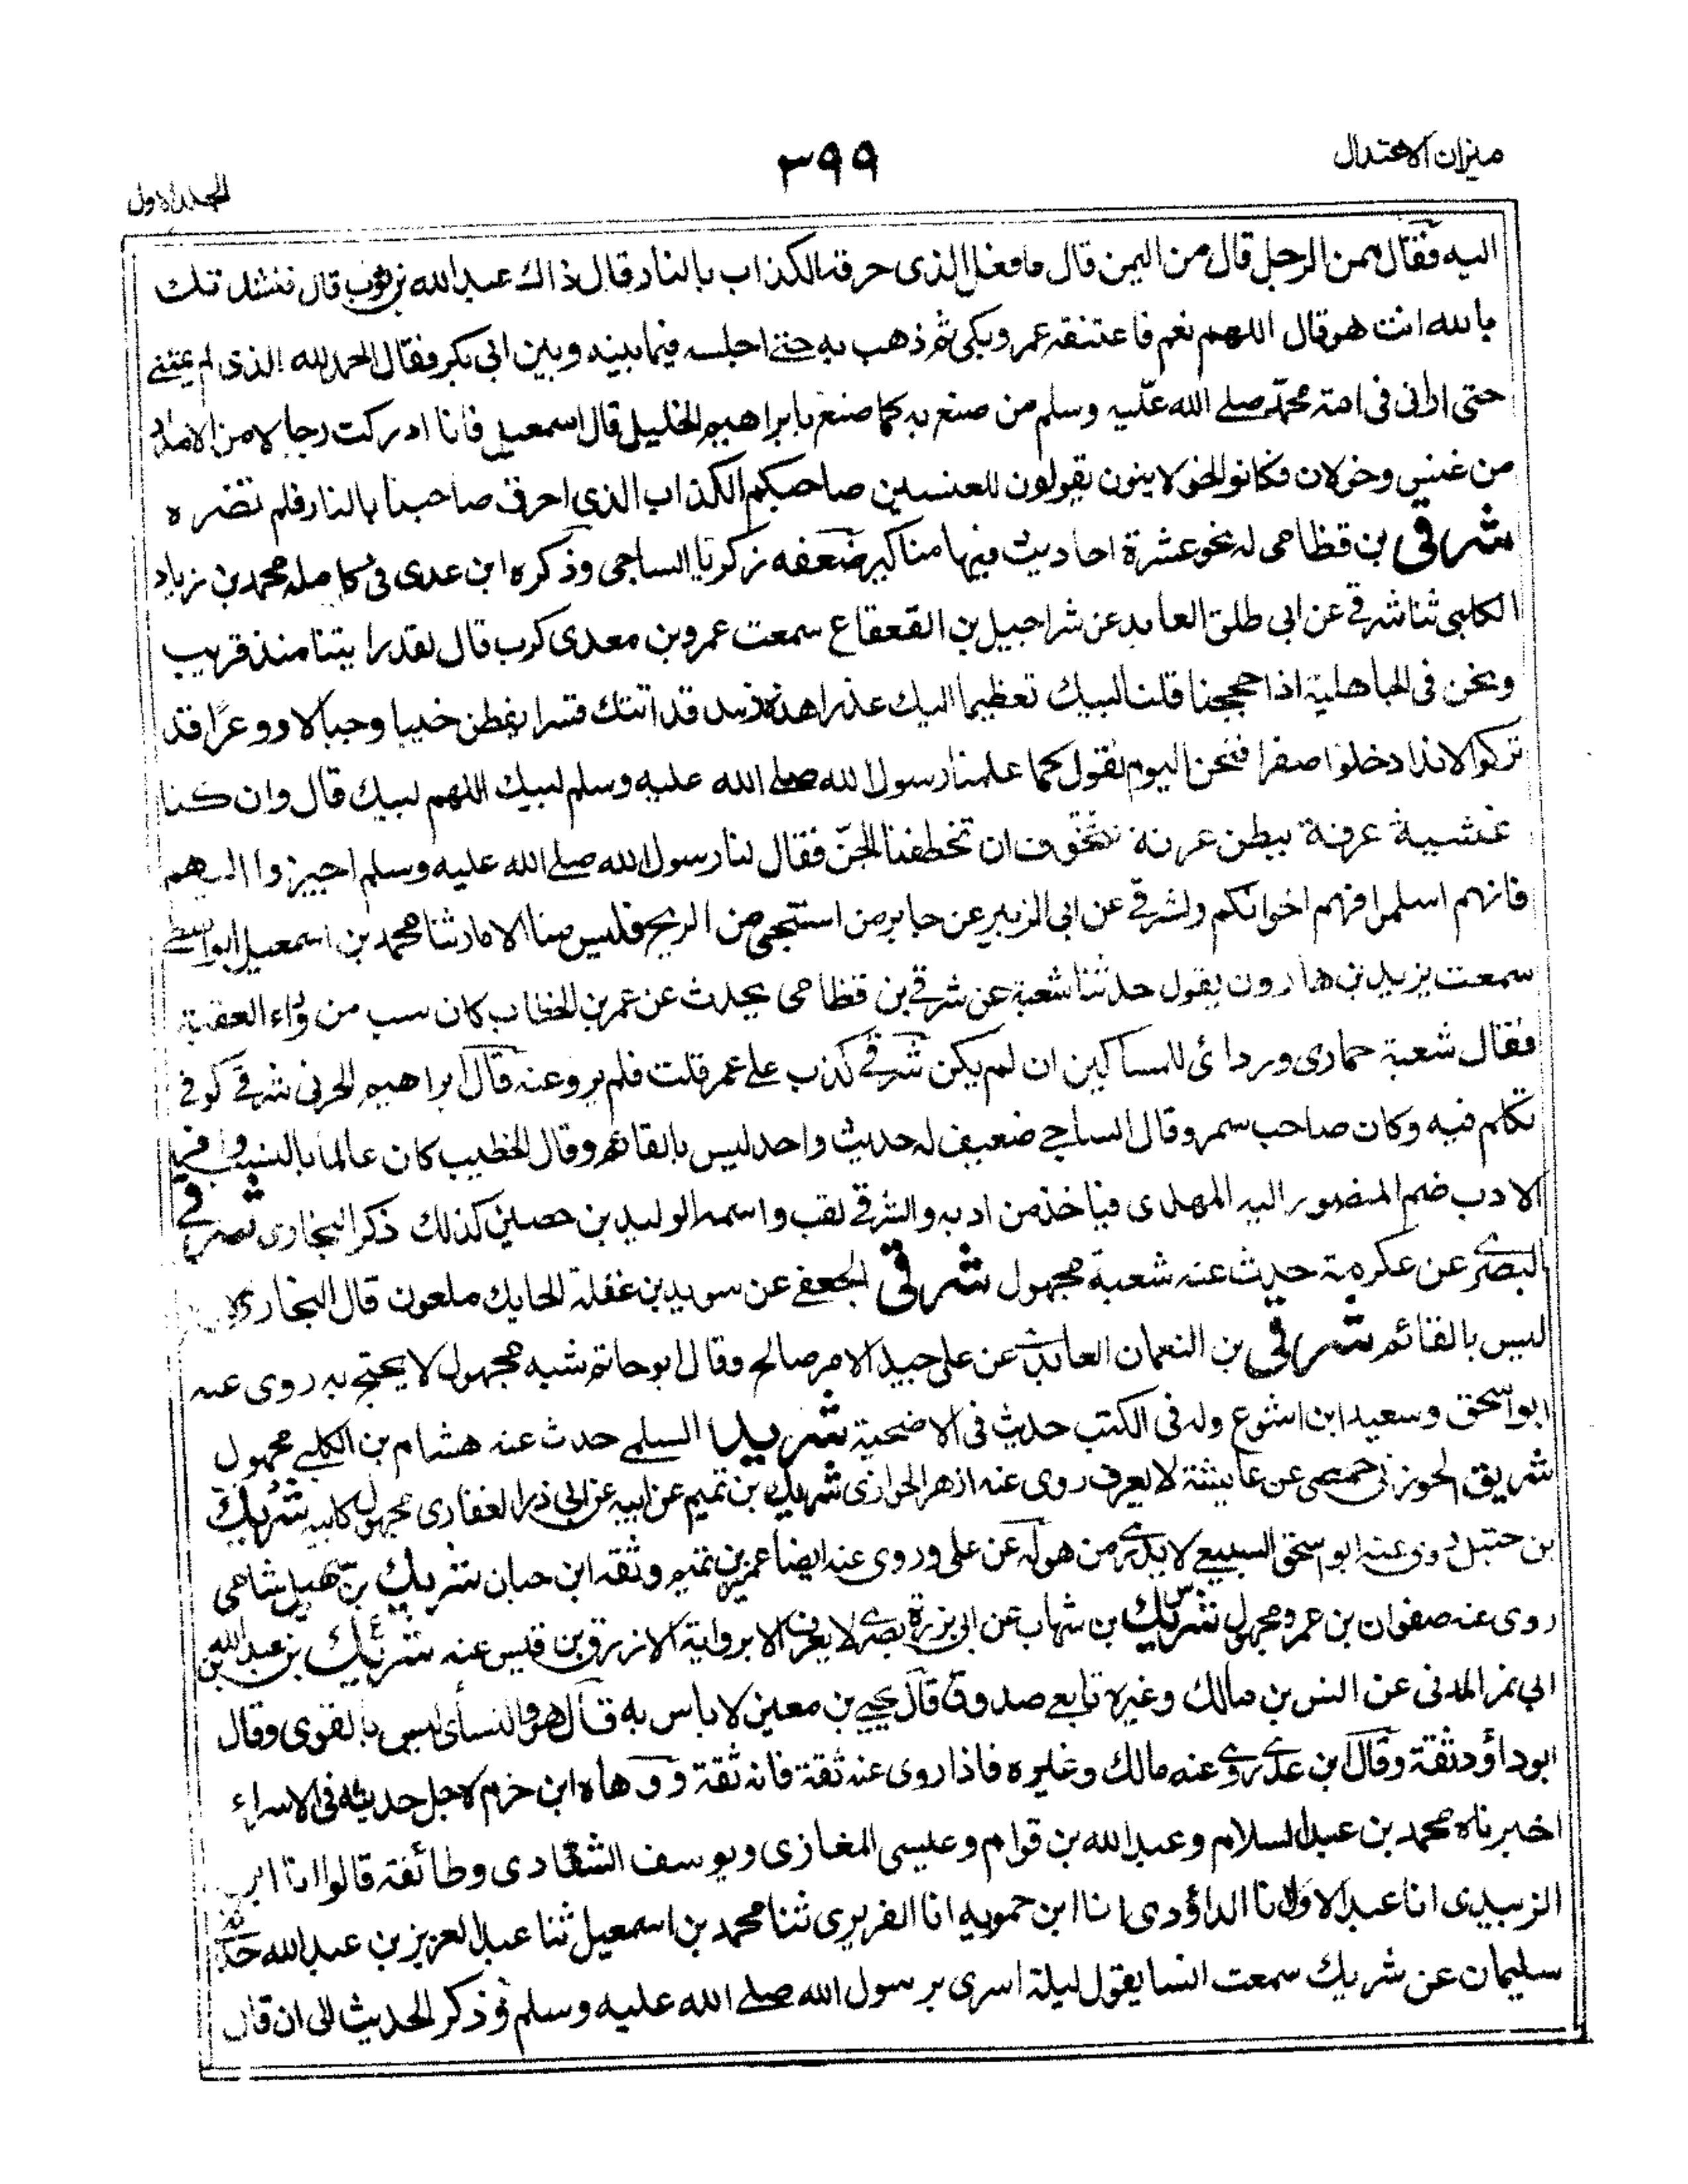 ميزان الاعتدال
٣٩٩
المجلد الاول
اليه فقال ممن الرجل قال من اليمن قال ما فعل الذى حرقه الكذاب بالنار قال ذاك عبد الله بن ثوب قال فنشدتك
بالله انت هو قال اللهم نعم فاعتنقه عمر وبكى ثم ذهب به حتى اجلسه فيما بينه وبين ابى بكر فقال الحمد لله الذى لم يمتنى
حتى ارانى فى امة محمد صلى الله عليه وسلم من صنع به كما صنع بابراهيم الخليل قال اسمعيل فانا ادركت رجالا من الامداد
من عنس وخولان فكانوا الخولانيون يقولون للعنسيين صاحبكم الكذاب الذى احرق صاحبنا بالنار فلم تضره
شرقى بن قطامى له نحو عشرة احاديث فيها مناكير ضعفه زكريا الساجى وذكره ابن عدى فى كامله محمد بن زياد
الكلبى ثنا شرقى عن ابى طلق العابد عن شراحيل بن القعقاع سمعت عمرو بن معدى كرب قال لقد رايتنا منذ قريب
ونحن فى الجاهلية اذا حججنا قلنا لبيك تعظيما اليك عذرا هذه زبيد قد اتتك قسرا يقطعن خبتا وجبالا ووعرا قد
تركوا الانداد خلوا صفرا فنحن اليوم نقول كما علمنا رسول الله صلى الله عليه وسلم لبيك اللهم لبيك قال وان كنا
عشية عرفة ببطن عرنة نتخوف ان تخطفنا الجن فقال لنا رسول الله صلى الله عليه وسلم اجيزوا اليهم
فانهم اسلموا فهم اخوانكم ولشرقى عن ابى الزبير عن جابر من استنجى من الريح فليس منا الابار ثنا محمد بن اسمعيل الواسطى
سمعت يزيد بن هارون يقول حدثنا شعبة عن شرقى بن قطامى بحديث عن عمر بن الخطاب كان يبيت من وراء العقبة
فقال شعبة حمارى وردائى للمساكين ان لم يكن شرقى كذب على عمر قلت فلم يروعنه قال ابراهيم الحربى شرقى كوفى
تكلم فيه وكان صاحب سمر وقال الساجى ضعيف له حديث واحد ليس بالقائم وقال الخطيب كان عالما بالنسب وافر
الادب ضم المنصور اليه المهدى فياخذ من ادبه والشرقى لقب واسمه الوليد بن حصين كذلك ذكر البخارى شرقى
البصرى عن عكرمة حديث عنه شعبة مجهول شرقى الجعفى عن سويد بن غفلة الحايك ملعون قال البخارى
ليس بالقائم شرقى بن النعمان العابدى عن على جيد الامر صالح وقال ابو حاتم شبه مجهول لا يحتج به روى عنه
ابو اسحق وسعيد ابن اشوع وله فى الكتب حديث فى الاضحية شريد السلمى حدث عنه هشام بن الكلبى مجهول
شريق الهوزنى حمصى عن عايشة لا يعرف روى عنه ازهر الحرازى شريك بن تميم عن ابيه عن ابى ذر الغفارى مجهول كابيه شريك
بن حنبل روى عنه ابو اسحق السبيعى لا يدرى من هو له عن على وروى عنه ايضا عمير بن تميم وثقه ابن حبان شريك بن نهيل شامى
روى عنه صفوان بن عمرو مجهول شريك بن شهاب عن ابى برزة بصرى لا يعرف الا برواية الازرق بن قيس عنه شريك بن عبد الله بن
ابى نمر المدنى عن انس بن مالك وغيره تابعى صدوق قال يحيى بن معين لا باس به قال هو والنسائى ليس بالقوى وقال
ابو داؤد ثقة وقال ابن عدى روى عنه مالك وغيره فاذا روى عنه ثقة فانه ثقة ووهاه ابن حزم لاجل حديثه فى الاسراء
اخبرناه محمد بن عبد السلام وعبد الله بن قوام وعيسى المغازى ويوسف الشقارى وطائفة قالوا انا ابن
الزبيدى انا عبد الاول انا الداؤدى انا ابن حمويه انا الفربرى ثنا محمد بن اسمعيل ثنا عبد العزيز بن عبد الله حدثنى
سليمان عن شريك سمعت انسا يقول ليلة اسرى برسول الله صلى الله عليه وسلم فذكر الحديث الى ان قال